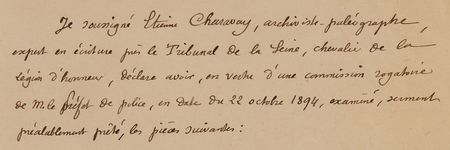 Je soussigné Etienne Charavay, archiviste-paléographe,
expert en écriture près le Tribunal de la Seine, chevalier de la
Légion d'honneur, déclare avoir, en vertu d'une commission rogatoire
de M. le Préfet de police, en date du 22 octobre 1894, examiné, serment
préalablement prêté, les pièces suivantes :